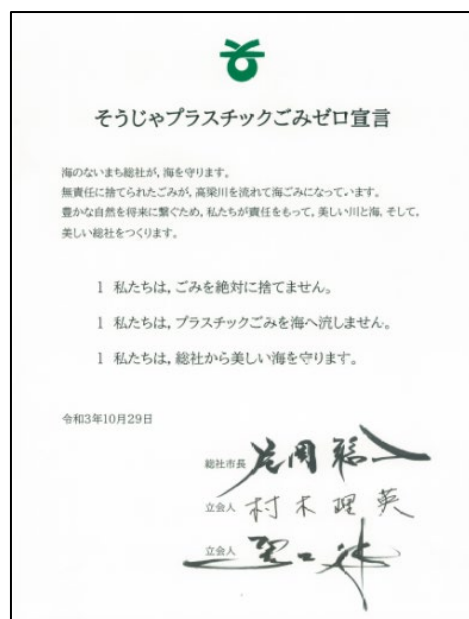 そうじゃプラスチックごみゼロ宣言
海のないまち総社が,海を守ります。
無責任に捨てられたごみが,高梁川を流れて海ごみになっています。
豊かな自然を将来に繋ぐため,私たちが責任をもって,美しい川と海,そして,
美しい総社をつくります。
1 私たちは,ごみを絶対に捨てません。
1 私たちは,プラスチックごみを海へ流しません。
1 私たちは,総社から美しい海を守ります。
令和3年10月29日
総社市長 片岡聡一
立会人 村木理英
立会人